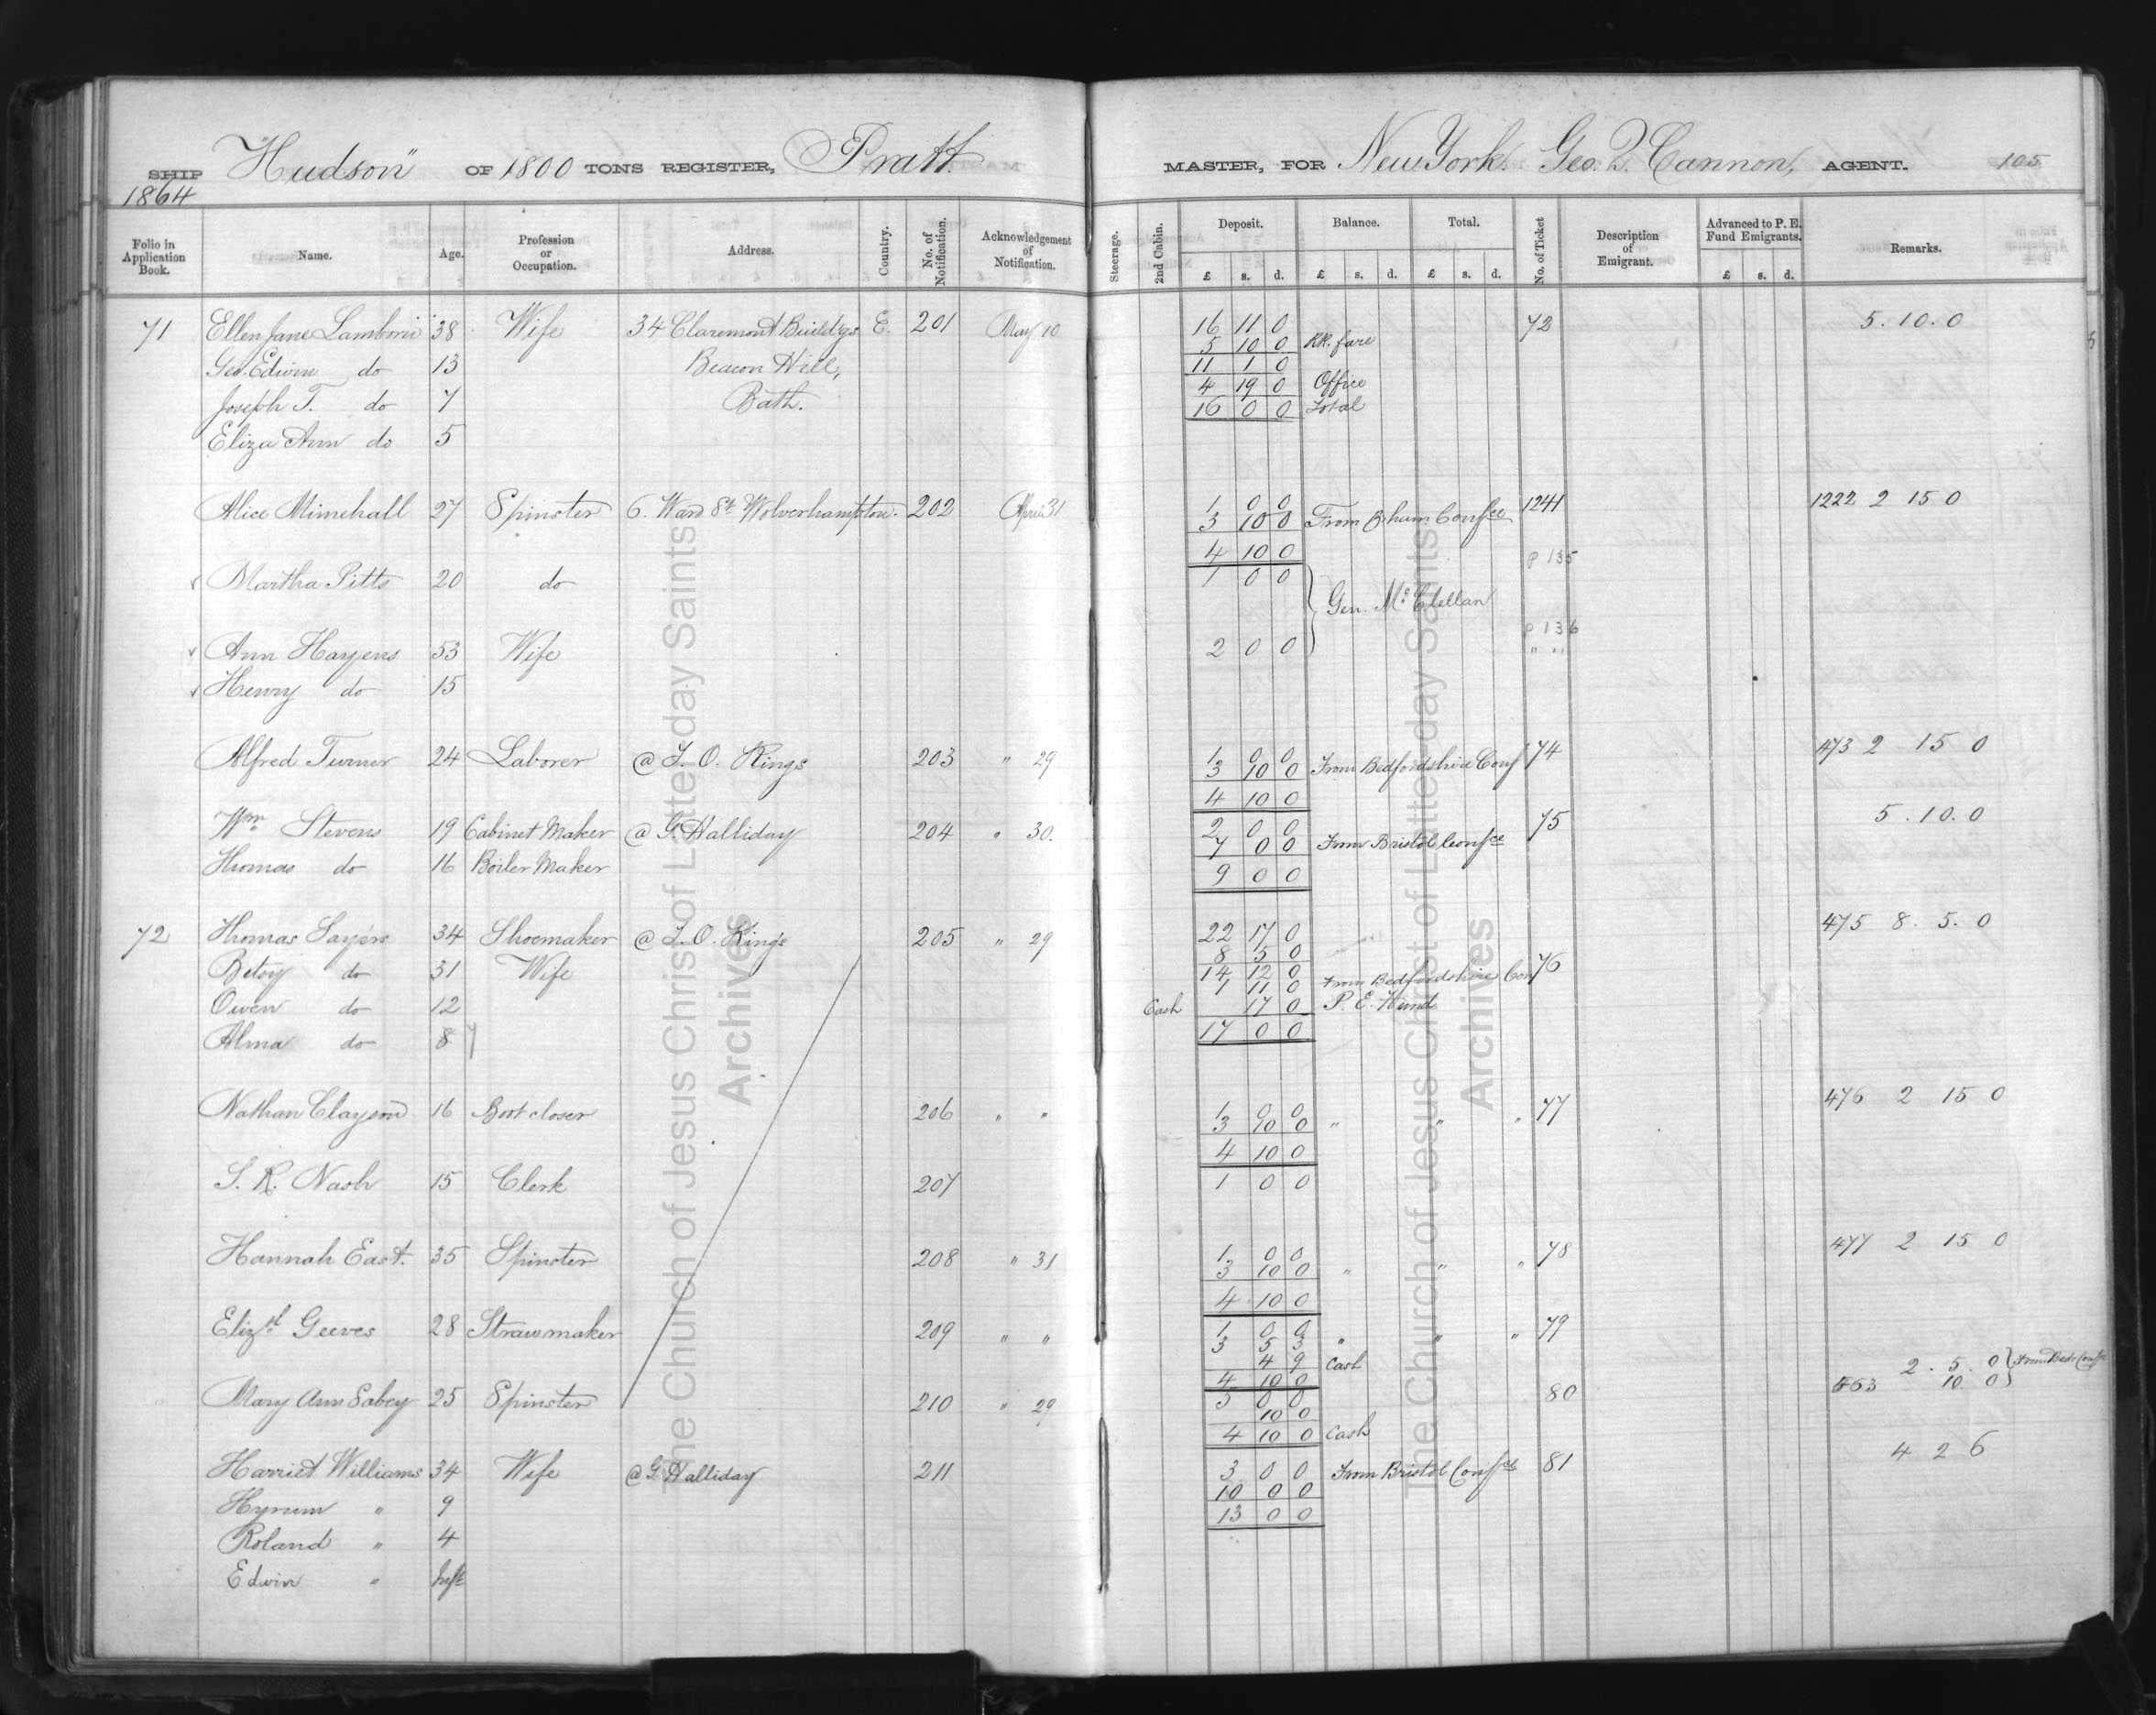 SHIP "Hudson" OF 1800 TONS REGISTER, Pratt MASTER, FOR New York. Geo. Q. Cannon, AGENT. 105
1864
Folio in Application Book. Name. Age. Profession or Occupation. Address. Country. No. of Notification. Acknowledgement of Notification. Steerage. 2nd Cabin. Deposit. Balance. Total. No. of Ticket Description of Emigrant. Advanced to P. E. Fund Emigrants. Remarks.
£ s. d. £ s. d. £ s. d. £ s. d.
71 Ellen Jane 38 Wife 34 Claremont Buildgs E. 201 May 10 16 11 0 5. 10. 0
5 10 0 RR. fare
Geo. Edwin do 13 Beacon Hill, 11 1 0
4 19 0 Office
Joseph T. do 7 Bath. 16 0 0 Total
Eliza Ann do 5
Alice 27 Spinster 6. Ward St. Wolverhampton. 202 April 31 1 0 0 1241 1222 2 15 0
3 10 0 From B.ham Confce
4 10 0 p 135
Martha Pitts 20 do 1 0 0
Gen. McClellan
p 136
Ann Hayens 53 Wife 2 0 0 " "
Henry do 15
Alfred Turner 24 Laborer @ T. O. Kings 203 " 29 1 0 0 74 473 2 15 0
3 10 0 From Bedfordshire Conf
4 10 0
Wm. Stevens 19 Cabinet Maker @ G. Halliday 204 " 30. 2 0 0 75 5. 10. 0
7 0 0 From Bristol Confce
Thomas do 16 Boiler Maker 9 0 0
72 Thomas Sayers 34 Shoemaker @ T. O. King's 205 " 29 22 17 0 475 8. 5. 0
8 5 0
Betsy do 31 Wife 14 12 0 From Bedfordshire Con 76
1 11 0
Owen do 12 Cash 17 0 P. E. Fund
Alma do 8 17 0 0
Nathan Clayson 16 Boot closer 206 " " 1 0 0 77 476 2 15 0
3 10 0 " " "
4 10 0
S. R. Nash 15 Clerk 207 1 0 0
Hannah East. 35 Spinster 208 " 31 1 0 0 78 477 2 15 0
3 10 0 " " "
4 10 0
Elizth Geeves 28 Strawmaker 209 " " 1 0 0 79
3 5 3 " " "
4 9 Cash 2. 5. 0 From Beds Confce
4 10 0 10 0
Mary Ann Sabey 25 Spinster 210 " 29 0 0 80
10 0
4 10 0 Cash
Harriet Williams 34 Wife @ G. Halliday 211 3 0 0 From Bristol Confce 81 4 2 6
10 0 0
Hyrum " 9 13 0 0
Roland " 4
Edwin " Inft
The Church of Jesus Christ of Latter-day Saints
Archives
The Church of Jesus Christ of Latter-day Saints
Archives